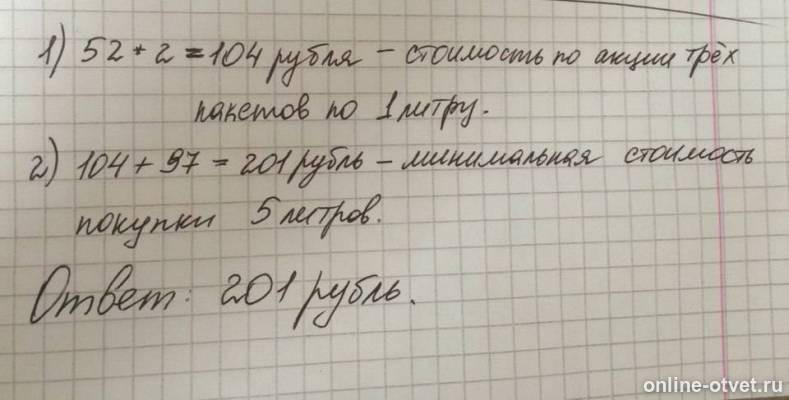 1) 52 * 2 = 104 рубля – стоимость по акции трёх
пакетов по 1 литру.
2) 104 + 97 = 201 рубль – минимальная стоимость
покупки 5 литров.
Ответ: 201 рубль.
online-otvet.ru